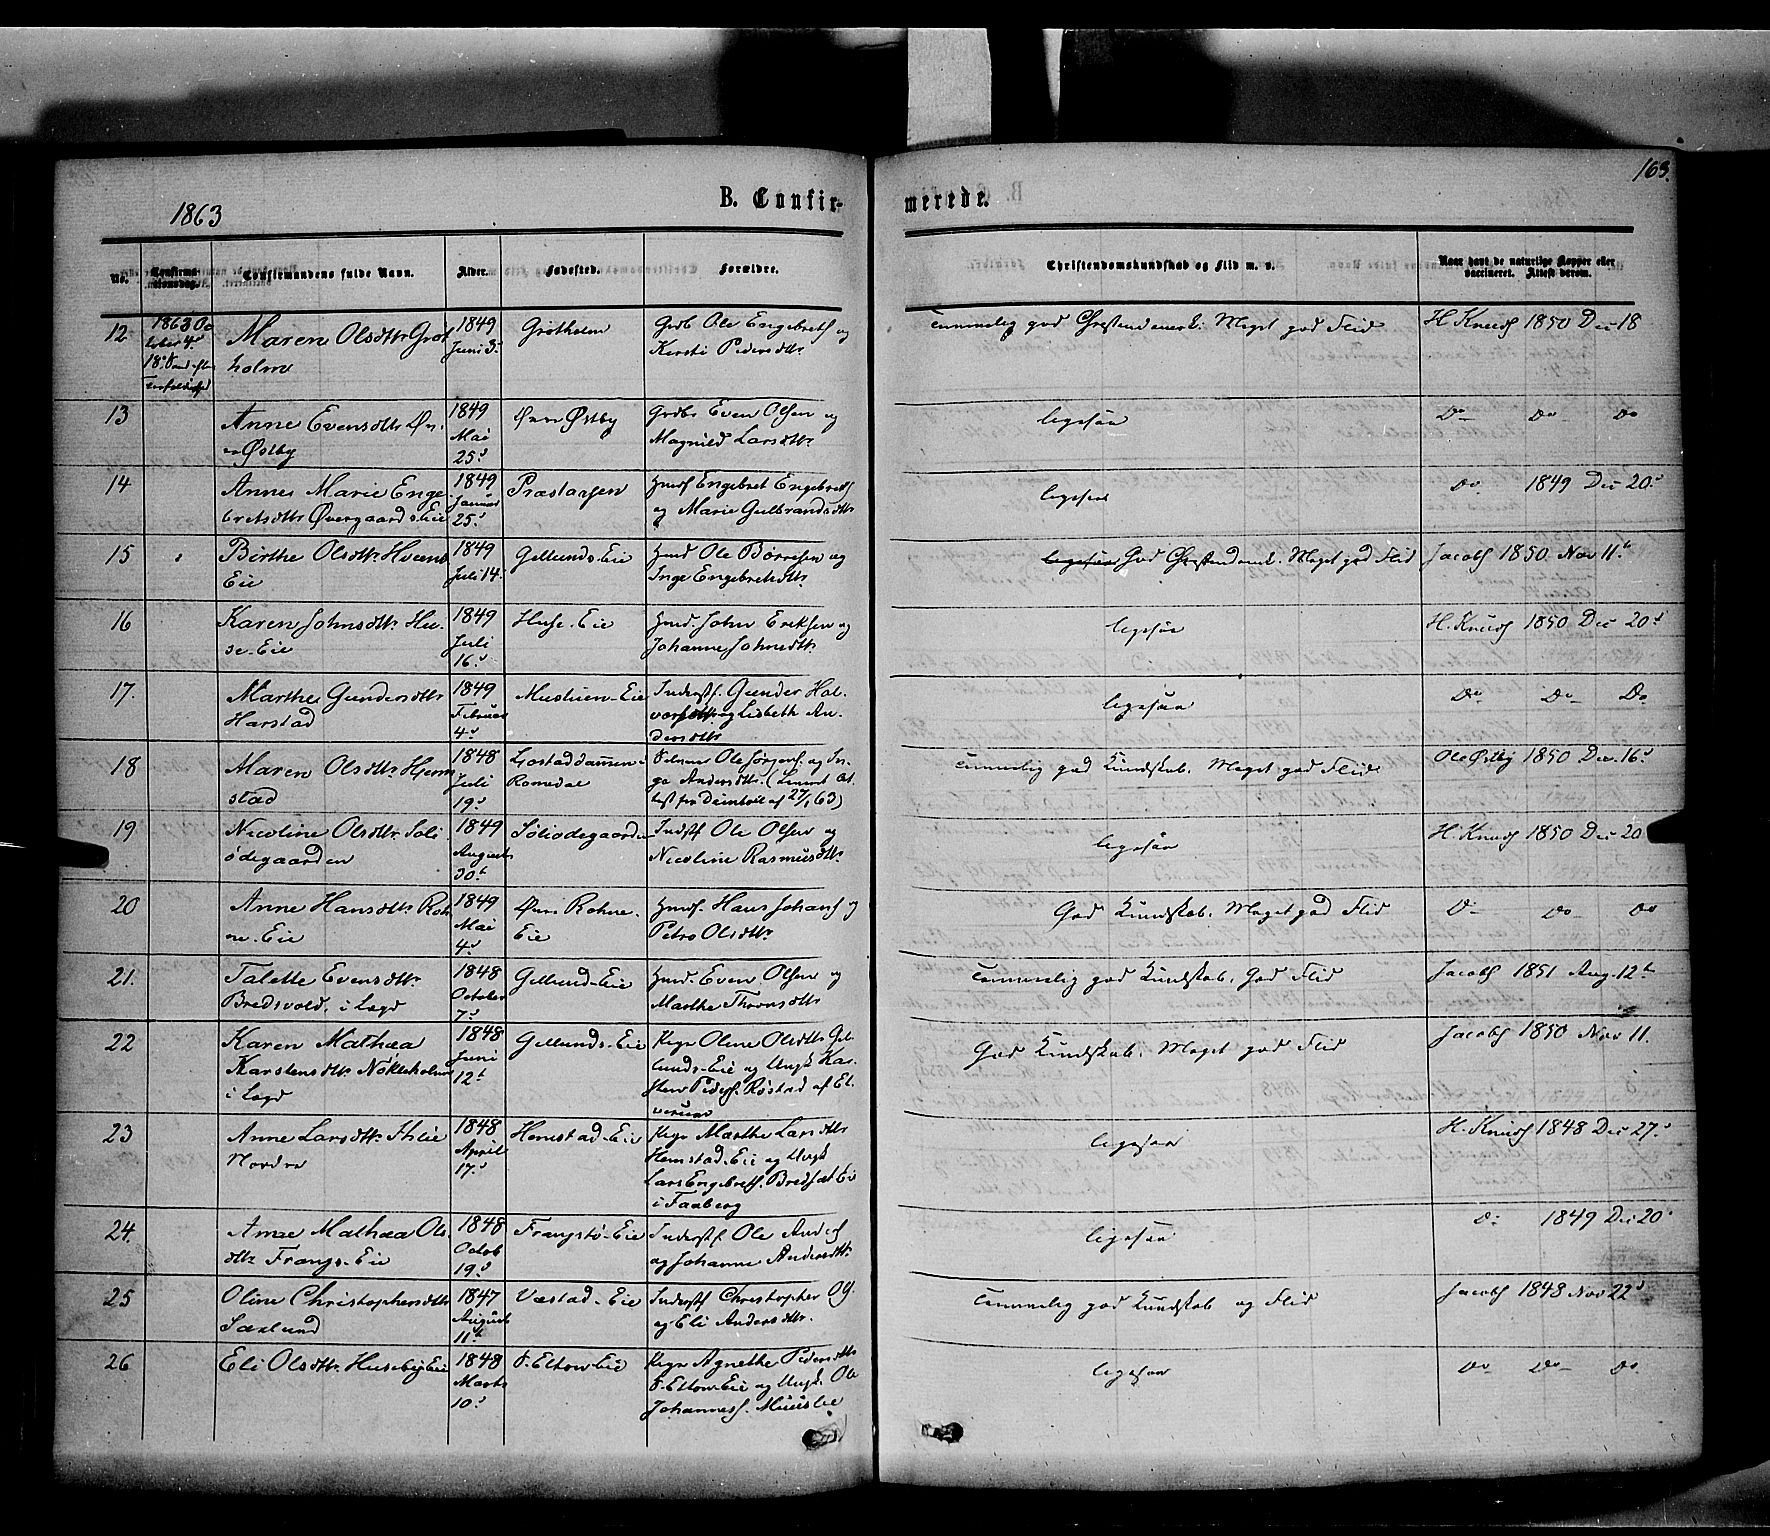 163.
1863
B. Confir-
merede.
No.
Confirma-
tionsdag.
Confirmandens fulde Navn.
Alder.
Fødested.
Forældre.
Christendomskundskab og Flid m. v.
Naar havt de naturlige Kopper eller
vaccineret. Attest derom.
12
1863 Oc
tober 4de
18de Sønd. efter
Maren Olsdttr Grøt
holm
1849
Juni 3.
Grøtholm
Grdb Ole Engebrets og
Kersti Pedersdttr
Temmelig god Christendomsk. Meget god Flid
H. Knuds 1850 Dec 18
13
Anne Evensdttr Øv-
re Østby
1849
Mai
25de
Øvre Østby
Grdbr Even Olsen og
Magnild Larsdttr
ligesaa
Do Do Do
14
Anne Marie Enge
bretsdttr Øvergaards Eie
1849
Januar
25de
Præstaasen
Huusf Engebret Engebrets
og Marie Gulbrandsdttr
ligesaa
Do 1849 Dec 20de
15
Birthe Olsdttr Hveem
Eie
1849
Juli 14
Gillunds-Eie
Huusf Ole Børresen og
Inge Engebretsdttr
ligesaa God Christendomsk. Meget god Flid
Jacobs 1850 Nov 11te
16
Karen Johnsdttr Hu-
se-Eie
1849
Juli
16de
Huse-Eie
Huusf. John Eriksen og
Johanne Johnsdttr
ligesaa
H. Knuds 1850 Dec 20de
17.
Marthe Gundersdttr
Harstad
1849
Februar
4de
Mustuen-Eie
Inderstf. Gunder Hal-
vorsen og Lisbeth An-
dersdttr
ligesaa
Do Do Do
18
Maren Olsdttr Hjem
stad
1848
Juli
19de
Romedal
Ole Jørgens. og In-
ga Andersdttr
af 27/1 63)
Temmelig god Kundskab. Meget god Flid
Ole Østby 1850 Dec. 16de
19
Nicoline Olsdttr Soli
ødegaarden
1849
August
30te
Soliødegaarden
Inderstf Ole Olsen og
Nicoline Rasmusdttr
ligesaa
H. Knuds 1850 Dec 20
20
Anne Hansdttr Roh
ne-Eie
1849
Mai
4de
Øvre Rohne-
Eie
Huusf. Hans Johans og
Petro Olsdttr
God Kundskab. Meget god Flid
Do Do Do
21.
Talette Evensdttr
Bredsvold, i Lægd
1848
October
7de
Gillund-Eie
Huusf. Even Olsen og
Marthe Thronsdttr
Temmelig god Kundskab. God Flid
Jacobs 1851 Aug. 12te
22
Karen Mathea
Karstensdttr Nøkleholm
i Lægd
1848
Juni
12te
Gillunds-Eie
Pige Oline Olsdttr Gil-
lunds-Eie og Ungk Kar-
sten Peders. Røstad af El-
verum
God Kundskab. Meget god Flid
Jacobs 1850 Nov 11.
23
Anne Larsdttr Ihlie
Nordre
1848
April
17de
Hemstad-Eie
Pige Marthe Larsdttr
Hemstad-Eie og Ungk
Lars Engebrets. Eie
i Faaberg
ligesaa
H. Knuds 1848 Dec 27de
24.
Anne Mathea Ols
dttr Frangs-Eie
1848
Octob
19de
Frangstø-Eie
Inderstf Ole Anders
og Johanne Andersdttr
ligesaa
Do 1849 Dec 20de
25
Oline Christophersdttr
Sælund
1847
August
11te
Væstad-Eie
Inderstf Christopher Ols
og Eli Andersdttr.
Temmelig god Kundskab og Flid
Jacobs 1848 Nov 22de
26
Eli Olsdttr Huseby Eie
1848
Marts
10de
S. Elton-Eie
Pige Agnethe Pedersdttr
S. Elton-Eie og Ungk. Ole
Johannes.
ligesaa
Do Do Do